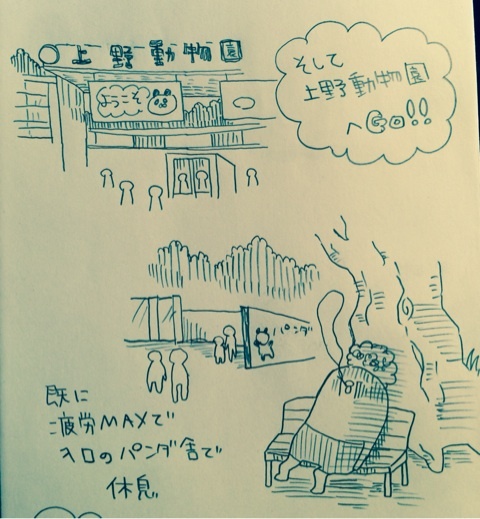 上野動物園
ようこそ
そして
上野動物園
へGO!!
パンダ
既に
疲労MAXで
入口のパンダ舎で
休息